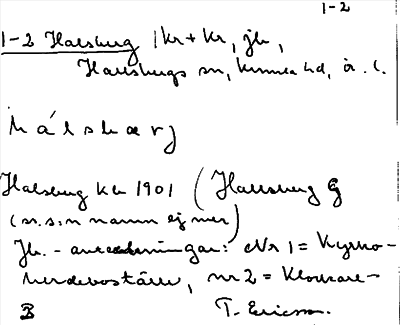 1-2
1-2 Halsberg 1 kr + kr, jb,
Hallsbergs sn, Kumla hd, ör. l.
hálsbærj
Halsberg kh 1901 (Hallsberg G
(sn. s:n namn ej mer)
Jb. - anteckningar: Nr 1 = Kyrko-
herdeboställe, nr 2 = Klockare-
B T. Ericsson.